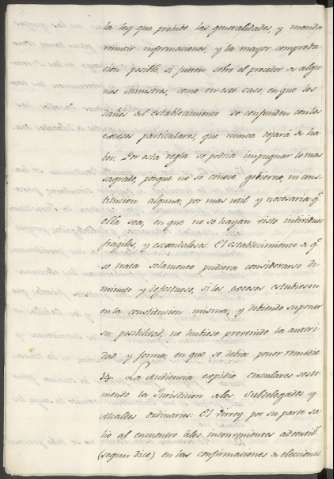 la ley que prohibe las generalidades, y manda
remitir informaciones, y la mayor comproba-
cion posible si fueren sobre el proceder de algu-
nos ministros, como en ese caso, en que los
daños del establecimiento se confunden con los
excesos particulares, que nunca dejará de ha-
ber. Por esta regla se podria impugnar lo mas
sagrado, porque no se conoce gobierno, ni cons-
titucion alguna, por mas util y necesaria qᵉ
ella sea, en que no se hayan visto individuos
fragiles, y escandalosos. El establecimiento de qᵉ
se trata solamente pudiera considerarse
y defectuoso, si los excesos estubiesen
en la constitucion misma, y debiendo suponer
su posibilidad, no hubiese prevenido la autori-
dad y forma, en que se debia poner remedio
La audiencia expidio circulares come-
tiendo la Jurisdicion a los Subdelegados y
alcaldes ordinarios. El Virrey por su parte sa-
lio al encuentro a los inconvenientes
(segun dice) en las confirmaciones a elecciones